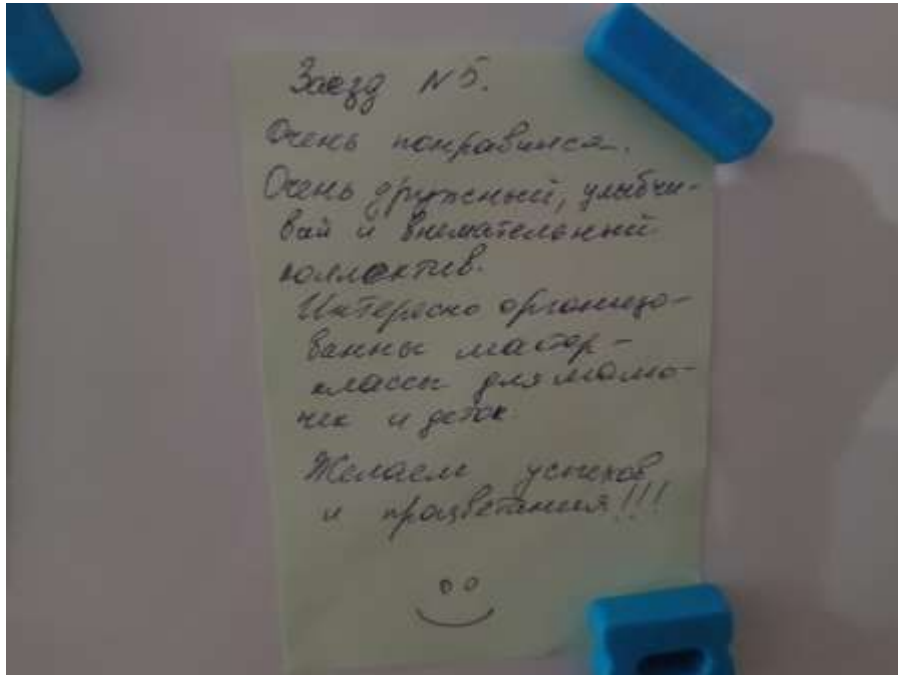 Заезд N5.
Очень понравился.
Очень дружный, улыбчи-
вай и внимательный
коллектив.
Интересно организо-
ванны мастер-
классы для мамо-
чек и деток.
Желаем успехов
и процветания!!!